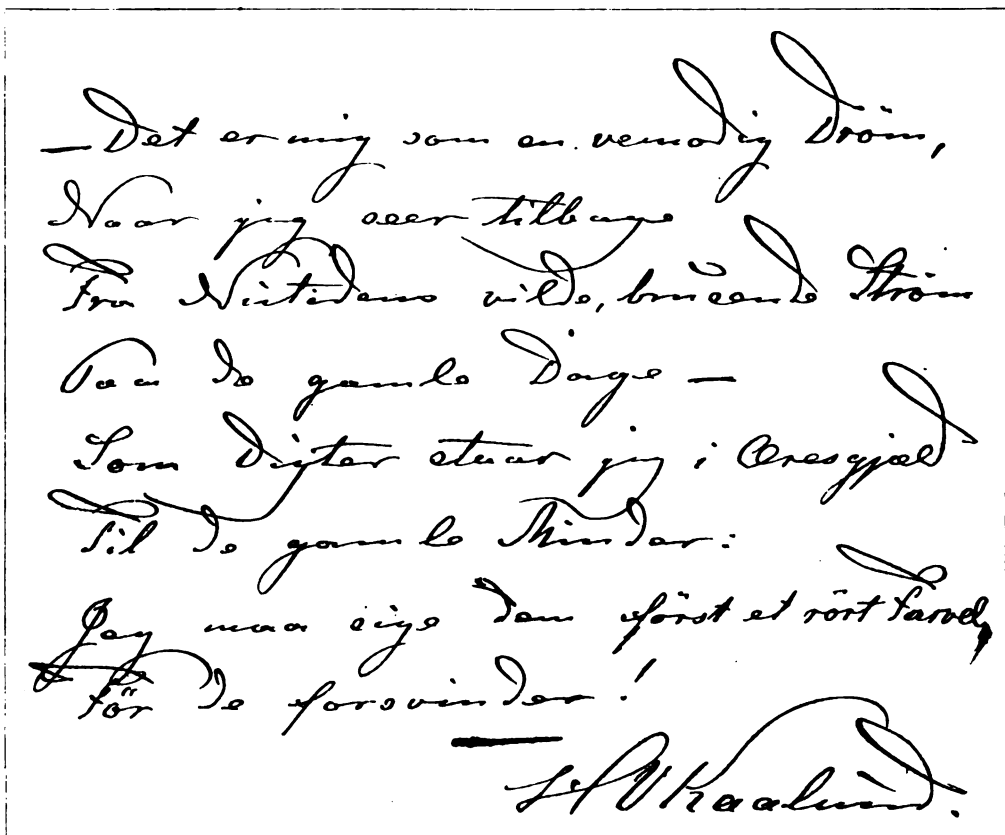 — Det er mig som en vemodig Dröm,
Naar jeg seer tilbage
Fra Nutidens vilde, brusende Ström
Paa de gamle Dage —
Som Digter staar jeg i Æresgjæld
Til de gamle Minder:
Jeg maa sige dem först et rört Farvel,
För de forsvinder!
H V Kaalund.